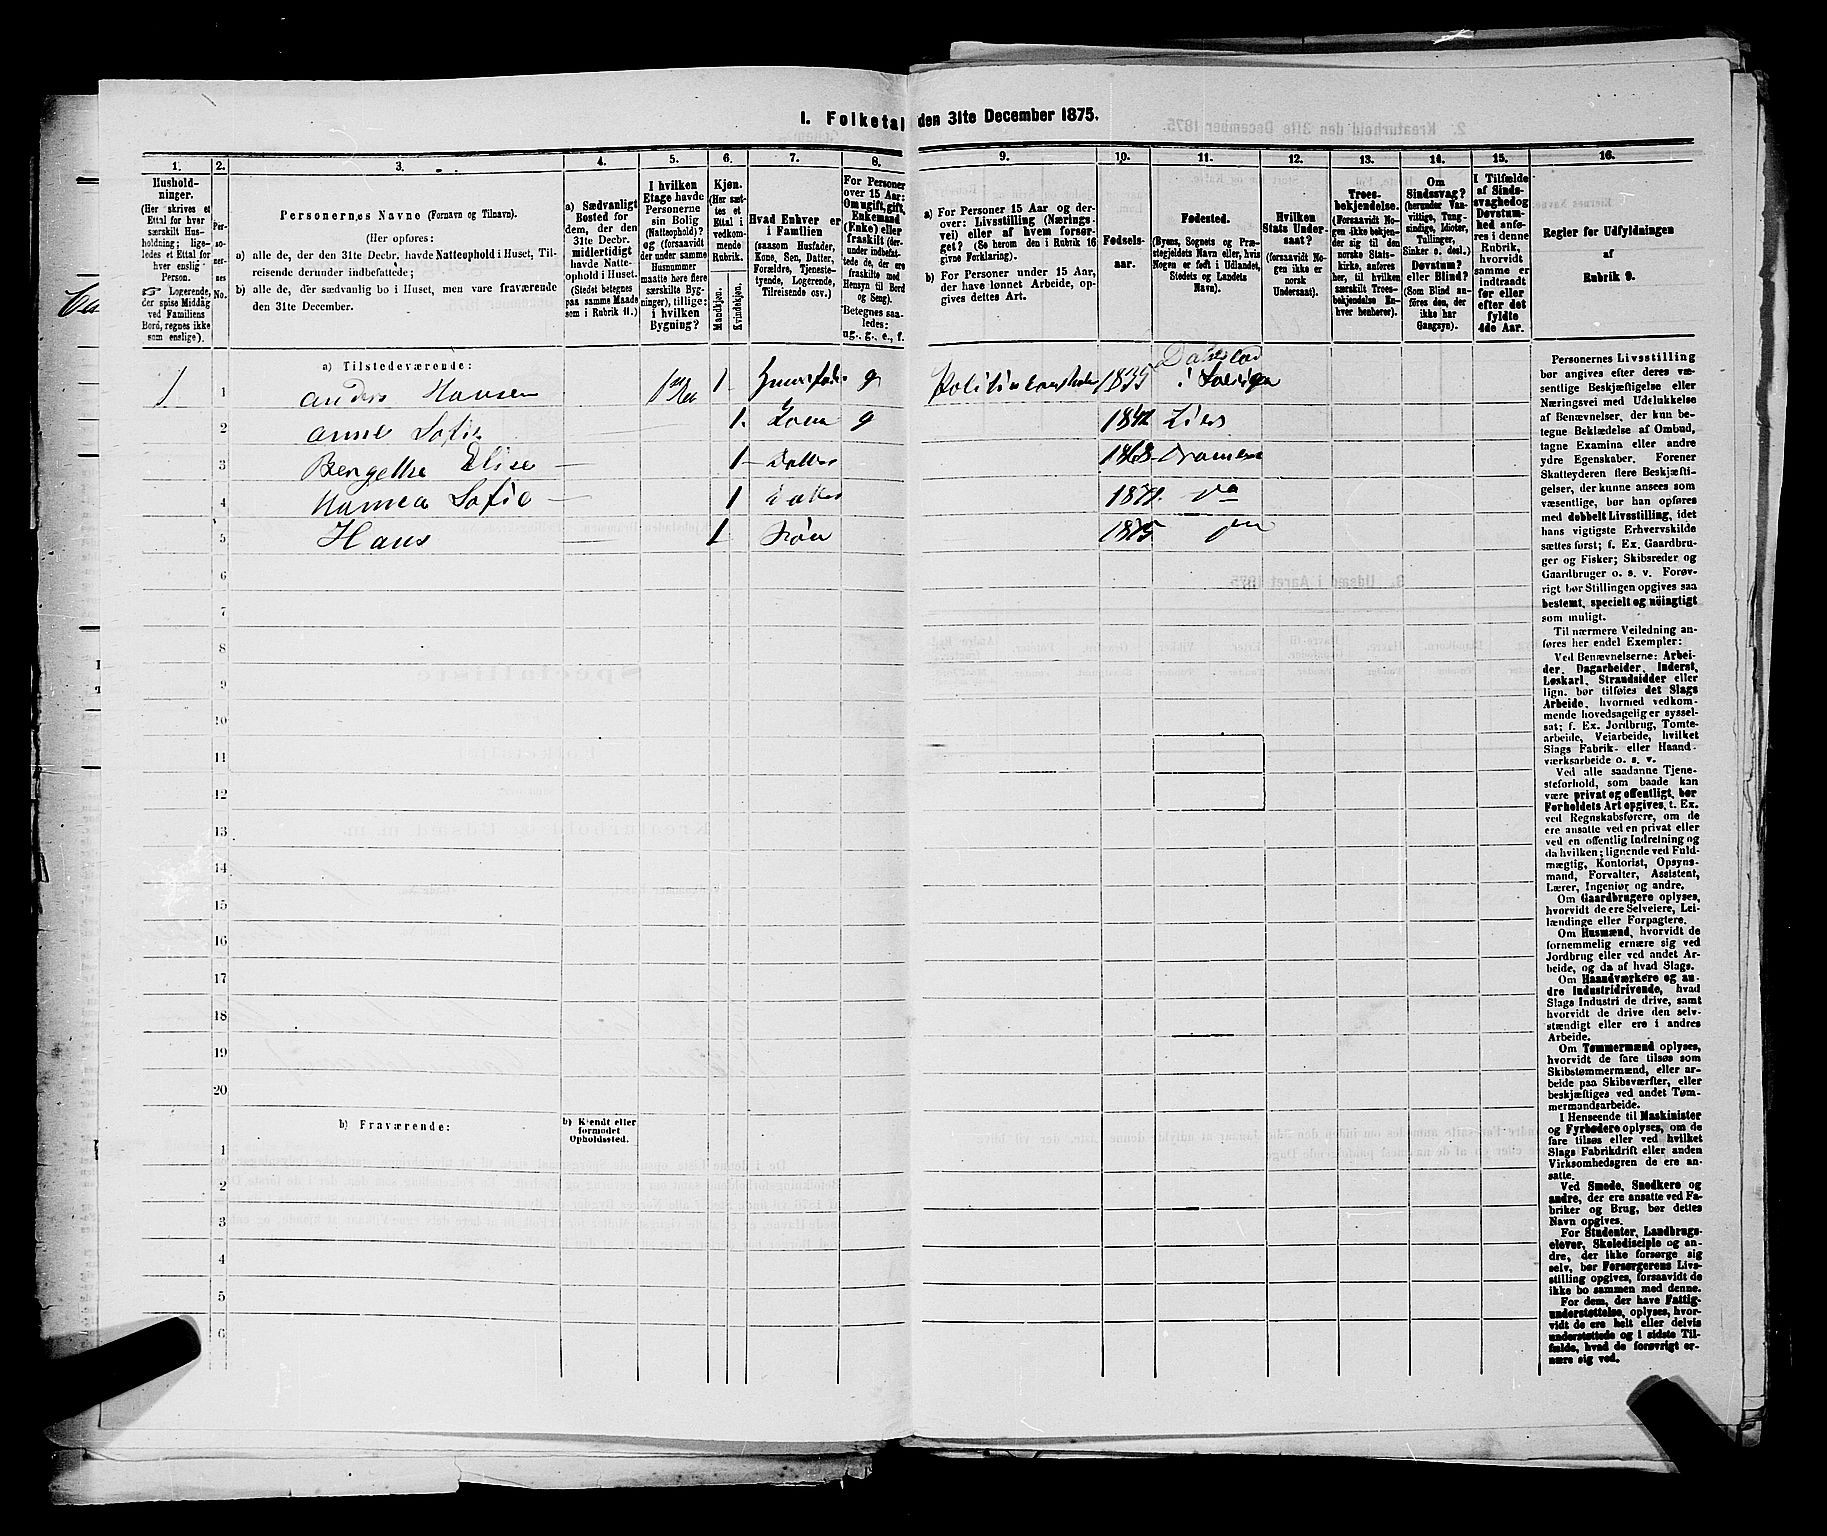 I. Folketal den 31te December 1875.
1. 2. 3. 4. 5. 6. 7. 8. 9. 10. 11. 12. 13. 14. 15. 16.
Husholdninger.
(Her skrives et
Ettal for hver
særskilt Husholdning;
ligeledes et Ettal
for hver enslig
Person.
Logerende,
der spise Middag
ved Familiens
Bord, regnes ikke
som enslige).
Personernes
No.
Personernes Navne (Fornavn og Tilnavn).
(Her opføres:
a) alle de, der den 31te Decbr. havde Natteophold i Huset, Tilreisende
derunder indbefattede;
b) alle de, der sædvanlig bo i Huset, men vare fraværende
den 31te December.
a) Sædvanligt
Bosted for
dem, der den
31te Decbr.
midlertidigt
havde Natteophold
i Huset.
(Stedet betegnes
paa samme Maade
som i Rubrik 11.)
I hvilken
Etage havde
Personerne
sin Bolig
(Natteophold)?
og (forsaavidt
der under samme
Husnummer
maatte høre flere
særskilte Bygninger),
tillige:
i hvilken
Bygning?
Kjøn.
(Her sættes
et
Ettal i
vedkommende
Rubrik.
Mandkjøn.
Kvindekjøn.
Hvad Enhver er
i Familien
(saasom Husfader,
Kone, Søn, Datter,
Forældre, Tjenestetyende,
Logerende,
Tilreisende osv.)
For Personer
over 15 Aar:
Om ugift, gift,
Enkemand
(Enke) eller
fraskilt (derunder
indbefattede
de, der ere
fraskilte med
Hensyn til Bord
og Seng).
Betegnes saaledes:
ug., g., e., f.
a) For Personer 15 Aar og derover:
Livsstilling (Næringsvei)
eller af hvem forsørget?
(Se herom den i Rubrik 16
givne Forklaring).
b) For Personer under 15 Aar,
der have lønnet Arbeide, opgives
dettes Art.
Fødselsaar.
Fødested.
(Byens, Sognets og Præstegjeldets
Navn, eller, hvis
Nogen er født i Udlandet,
Stedets og Landets
Navn).
Hvilken
Stats Undersaat?
(forsaavidt Nogen
ikke er
norsk
Undersaat).
Troesbekjendelse.
(Forsaavidt Nogen
ikke bekjender
sig til den
norske Statskirke,
anføres
her, til hvilken
særskilt Troesbekjendelse
Enhver
henhører).
Om
Sindssvag?
(herunder Vanvittige,
Tungsindige,
Idioter,
Tullinger,
Sinker o. desl.)
Døvstum?
eller Blind?
(Som Blind anføres
den, der
ikke har
Gangsyn).
I Tilfælde
af Sindssvaghed
og
Døvstumhed
anføres
i denne
Rubrik,
hvorvidt
samme er
indtraadt
før eller
efter det
fyldte
4de Aar.
Regler for Udfyldningen
af
Rubrik 9.
a) Tilstedeværende:
1 1 Anders Hansen 1 g 1835 i
2 Anne Sofie 1 Kone g 1842 Lier
3 Elise 1 Datter 1868 Drammen
4 Sofie 1 Datter 1871 do
5 Hans 1 Søn 1875 do
6
7
8
9
10
11
12
13
14
15
16
17
18
19
20
b) Fraværende:
b) Kjendt eller
formodet
Opholdssted.
1
2
3
4
5
6
Personernes Livsstilling
bør angives efter deres væsentlige
Beskjæftigelse eller
Næringsvei med Udelukkelse
af Benævnelser, der kun betegne
Beklædelse af Ombud,
tagne Examina eller andre
ydre Egenskaber. Forener
Skatteyderen flere Beskjæftigelser,
der kunne ansees som
væsentlige, bør han opføres
med dobbelt Livsstilling, idet
hans vigtigste Erhvervskilde
sættes først; f. Ex. Gaardbruger
og Fisker; Skibsreder og
Gaardbruger o. s. v. Forøvrigt
bør Stillingen opgives saa
bestemt, specielt og nöiagtigt
som muligt.
Til nærmere Veiledning anføres
her endel Exempler:
Ved Benævnelserne: Arbeider,
Dagarbeider, Inderst,
Løskarl, Strandsidder eller
lign. bør tilføies det Slags
Arbeide, hvormed vedkommende
hovedsagelig er sysselsat;
f. Ex. Jordbrug, Tomtearbeide,
Veiarbeide, hvilket
Slags Fabrik- eller Haandværksarbeide
o. s. v.
Ved alle saadanne Tjenesteforhold,
som baade kan
være privat og offentligt, bør
Forholdets Art opgives, t. Ex.
ved Regnskabsførere, om de
ere ansatte ved en privat eller
ved en offentlig Indretning og
da hvilken; lignende ved Fuldmægtig,
Kontorist, Opsynsmand,
Forvalter, Assistent,
Lærer, Ingeniør og andre.
Om Gaardbrugere oplyses,
hvorvidt de ere Selveiere, Leilændinge
eller Forpagtere.
Om Husmænd, hvorvidt de
fornemmelig ernære sig ved
Jordbrug eller ved andet Arbeide,
og da af hvad Slags.
Om Haandværkere og andre
Industridrivende, hvad
Slags Industri de drive, samt
hvorvidt de drive den selvstændigt
eller ere i andres
Arbeide.
Om Tømmermænd oplyses,
hvorvidt de fare tilsøs som
Skibstømmermænd, eller arbeide
paa Skibsværfter, eller
beskjæftiges ved andet Tømmermandsarbeide.
I Henseende til Maskinister
og Fyrbødere oplyses, om de
fare tilsøs eller ved hvilket
Slags Fabrikdrift eller anden
Virksomhedsgren de ere ansatte.
Ved Smede, Snedkere og
andre, der ere ansatte ved Fabriker
og Brug, bør dettes
Navn opgives.
For Studenter, Landbrugselever,
Skoledisciple og andre,
der ikke forsørge sig
selv, bør Forsørgerens Livsstilling
opgives, forsaavidt de
ikke bo sammen med denne.
For dem, der have Fattigunderstøttelse,
oplyses, hvorvidt
de ere helt eller delvis
understøttede og i sidste Tilfælde,
hvad de forøvrigt ernære
sig ved.